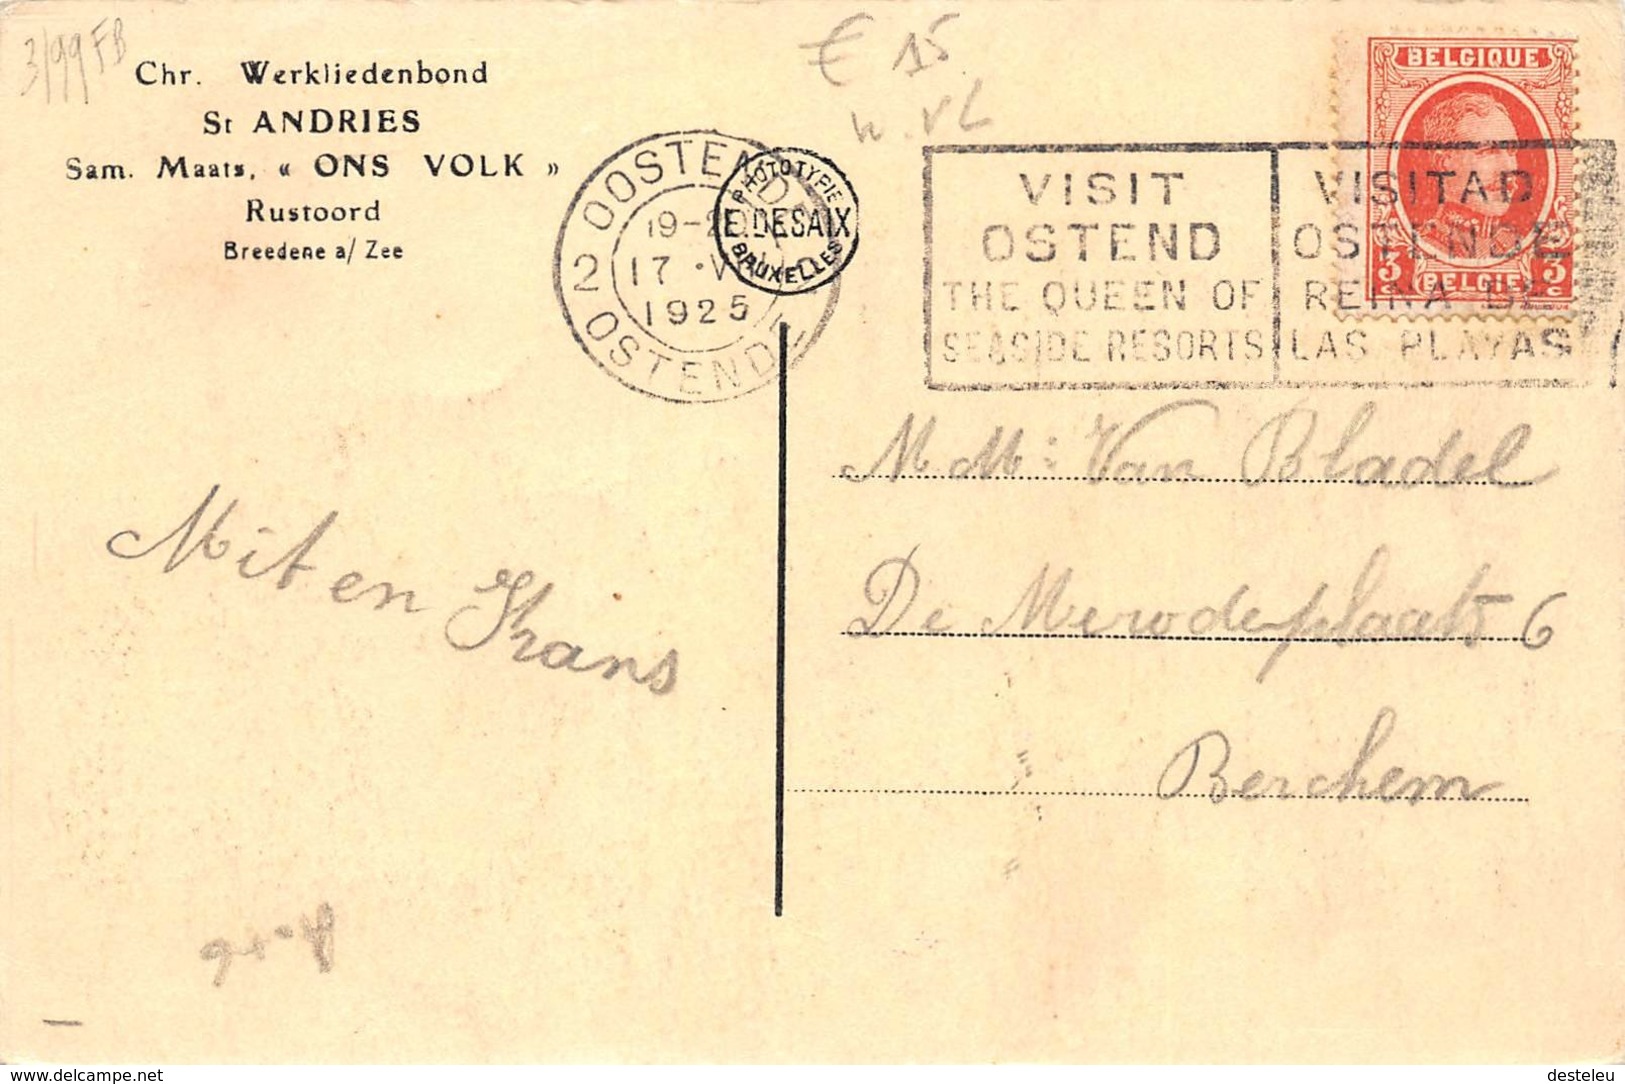 3/99 FB
€ 15
W. VL
Chr. Werkliedenbond
St ANDRIES
Sam. Maats, « ONS VOLK »
Rustoord
Breedene a/ Zee
2 OOSTENDE
19-20
17
1925
OSTENDE
PHOTOTYPIE
E.DESAIX
BRUXELLES
VISIT
OSTEND
THE QUEEN OF
SEASIDE RESORTS
VISITAD
OSTENDE
REINA DE
LAS PLAYAS
BELGIQUE
3 3
BELGIE
M M: Van Bladel
De Merodeplaats 6
Berchem
Mit en Frans
www.delcampe.net
desteleu